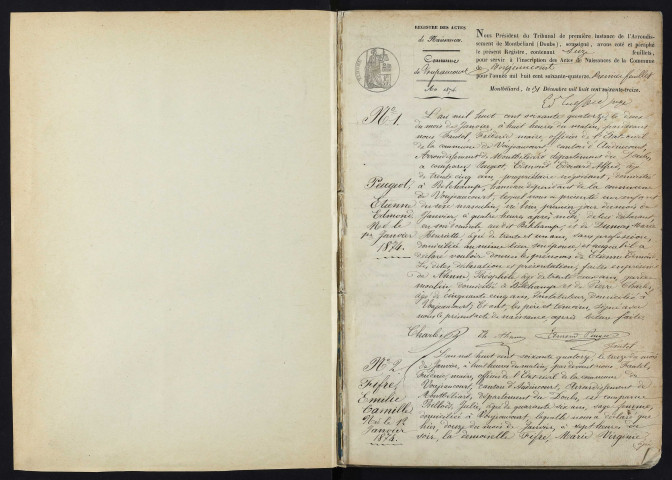 REGISTRE DES ACTES
de Naissances.
Commune
de Voujeaucourt
An 1874
Nous Président du Tribunal de première instance de l'Arrondis-
sement de Montbéliard (Doubs), soussigné, avons coté et paraphé
le présent Registre, contenant feuillets,
pour servir à l'inscription des Actes de Naissances de la Commune
de Voujeaucourt
pour l'année mil huit cent soixante-quatorze. Premier feuillet
Montbéliard, le 31 Décembre mil huit cent soixante-treize.
N° 1.
Peugeot,
Etienne
Edmond
Né le
1er Janvier
1874.
L'an mil huit cent soixante quatorze, le deux
du mois de Janvier, à huit heures du matin, par devant
nous Frédéric maire, officier de l'Etat civil
de la commune de Voujeaucourt, canton d'Audincourt,
Arrondissement de Montbéliard, département du Doubs,
a comparu Peugeot, Edmond Edouard Alfred, âgé
de trente cinq ans, propriétaire négociant, domicilié
à Belchamp, hameau dépendant de la commune
de Voujeaucourt, lequel nous a présenté un enfant
du sexe masculin, né hier, premier jour du mois de
Janvier, à quatre heures après midi, de lui déclarant,
en son domicile audit Belchamp, et de Marie
Henriette, âgée de trente et un ans, sans profession,
domiciliée au même lieu, son épouse, et auquel il a
déclaré vouloir donner les prénoms de Etienne Edmond.
Les dites déclaration et présentation, faites en présence
de Théophile, âgé de trente ans,
domicilié à Belchamp et de Pierre Charles,
âgé de cinquante cinq ans, Instituteur, domicilié à
Voujeaucourt; Et ont, les père et témoins, signé avec
nous le présent acte de naissance, après lecture faite.
Charles P. Th. Edmond Peugeot
N° 2.
Fesre,
Emilie
Camille
Née le 12
Janvier
1874.
L'an mil huit cent soixante quatorze, le treize du mois
de Janvier, à huit heures du matin, par devant nous
Frédéric, maire, officier de l'Etat civil de la commune de
Voujeaucourt, canton d'Audincourt, Arrondissement de
Montbéliard, département du Doubs, est comparue
Julie, âgée de quarante six ans, sage femme,
domiciliée à Voujeaucourt, laquelle nous a déclaré que
hier, douze du mois de Janvier, à sept heures du
soir, la demoiselle Fesre, Marie Virginie,